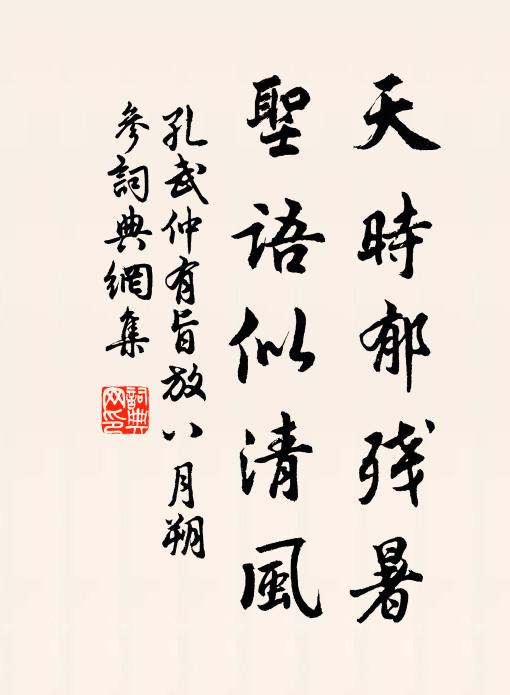 天時郁残暑
聖語似清風
孔武仲有旨放八月朔
參詞典網集
詞典网印